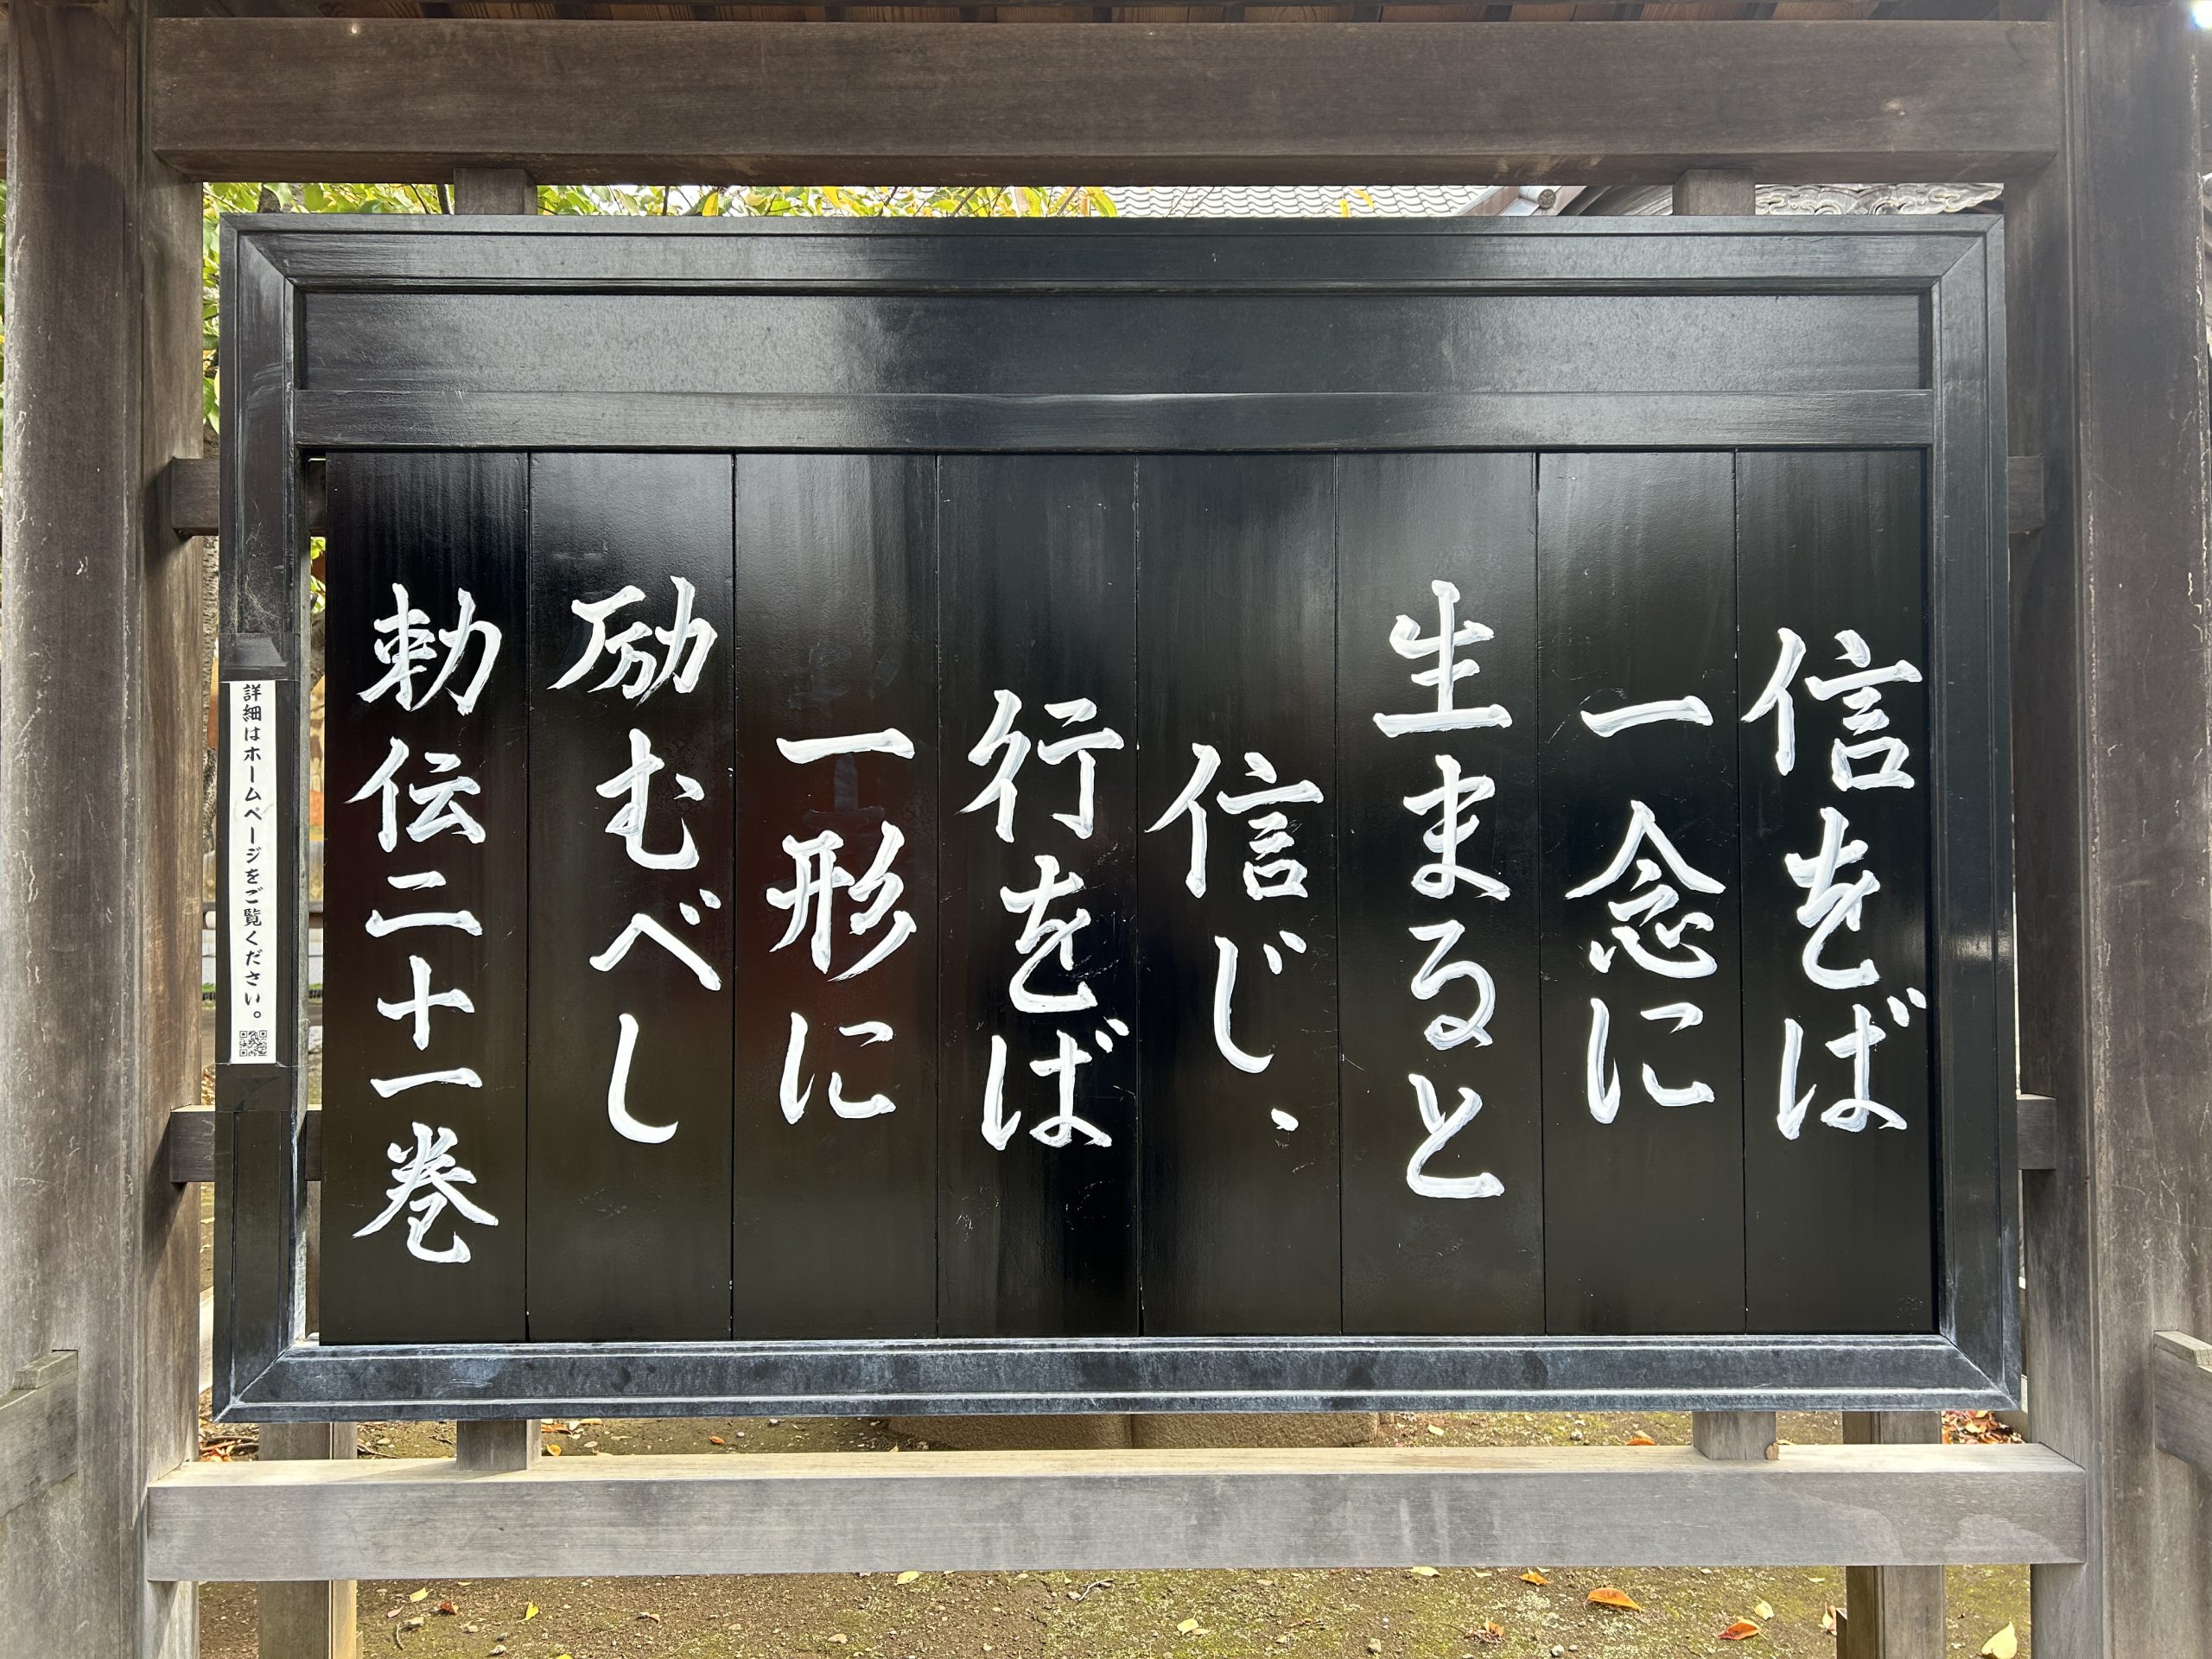 信をば
一念に
生まると
信じ、
行をば
一形に
励むべし
勅伝二十一巻
詳細はホームページをご覧ください。